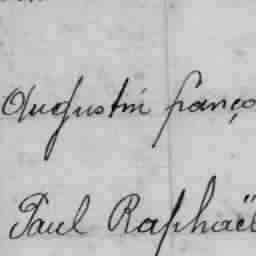 Augustin franço
Paul Raphaël